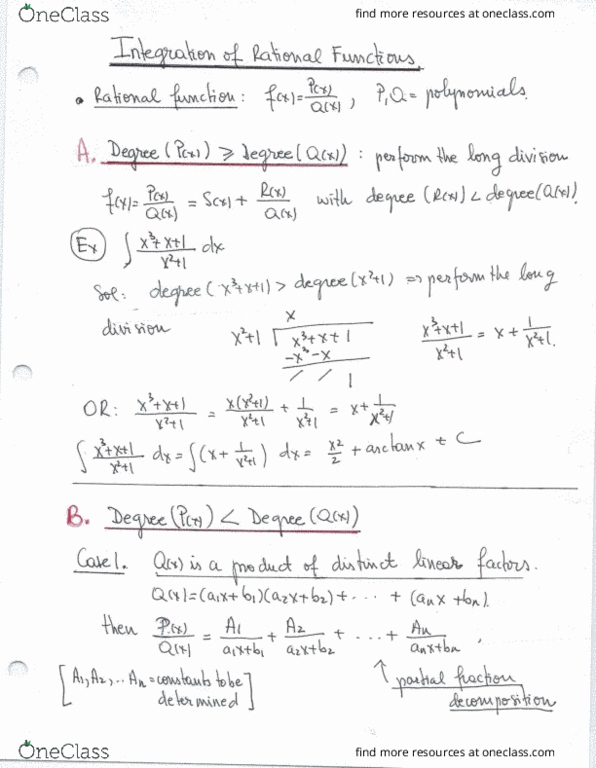 OneClass
find more resources at oneclass.com
Integration of Rational Functions.
• Rational function: f(x)=P(x)/Q(x), P,Q = polynomials.
A. Degree(P(x)) ≥ degree(Q(x)): perform the long division
f(x)=P(x)/Q(x) = S(x)+ R(x)/Q(x) with degree (R(x)) < degree(Q(x)).
Ex ∫ (x³+x+1)/(x²+1) dx
Sol: degree(x³+x+1) > degree(x²+1) => perform the long
division
x
x²+1 | x³+x+1
-x³-x
/ / 1
(x³+x+1)/(x²+1) = x + 1/(x²+1).
OR: (x³+x+1)/(x²+1) = x(x²+1)/(x²+1) + 1/(x²+1) = x + 1/(x²+1)
∫ (x³+x+1)/(x²+1) dx = ∫(x + 1/(x²+1)) dx = x²/2 + arctanx + C
B. Degree(P(x)) < Degree(Q(x))
Case 1. Q(x) is a product of distinct linear factors.
Q(x)=(a₁x+b₁)(a₂x+b₂)+ ... + (aₙx+bₙ).
then P(x)/Q(x) = A₁/(a₁x+b₁) + A₂/(a₂x+b₂) + ... + Aₙ/(aₙx+bₙ),
[A₁,A₂,..Aₙ = constants to be
determined]
↑ partial fraction
decomposition
OneClass
find more resources at oneclass.com